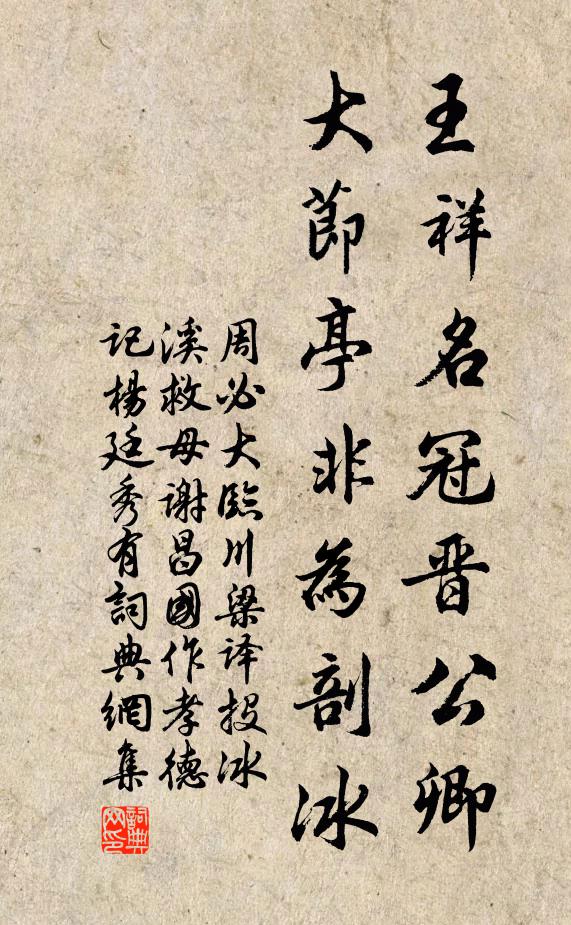 王祥名冠晋公卿
大節亭非為剖冰
周必大臨川梁译投冰
溪救母谢昌國作孝德
记楊廷秀有詞典網集
詞典網印